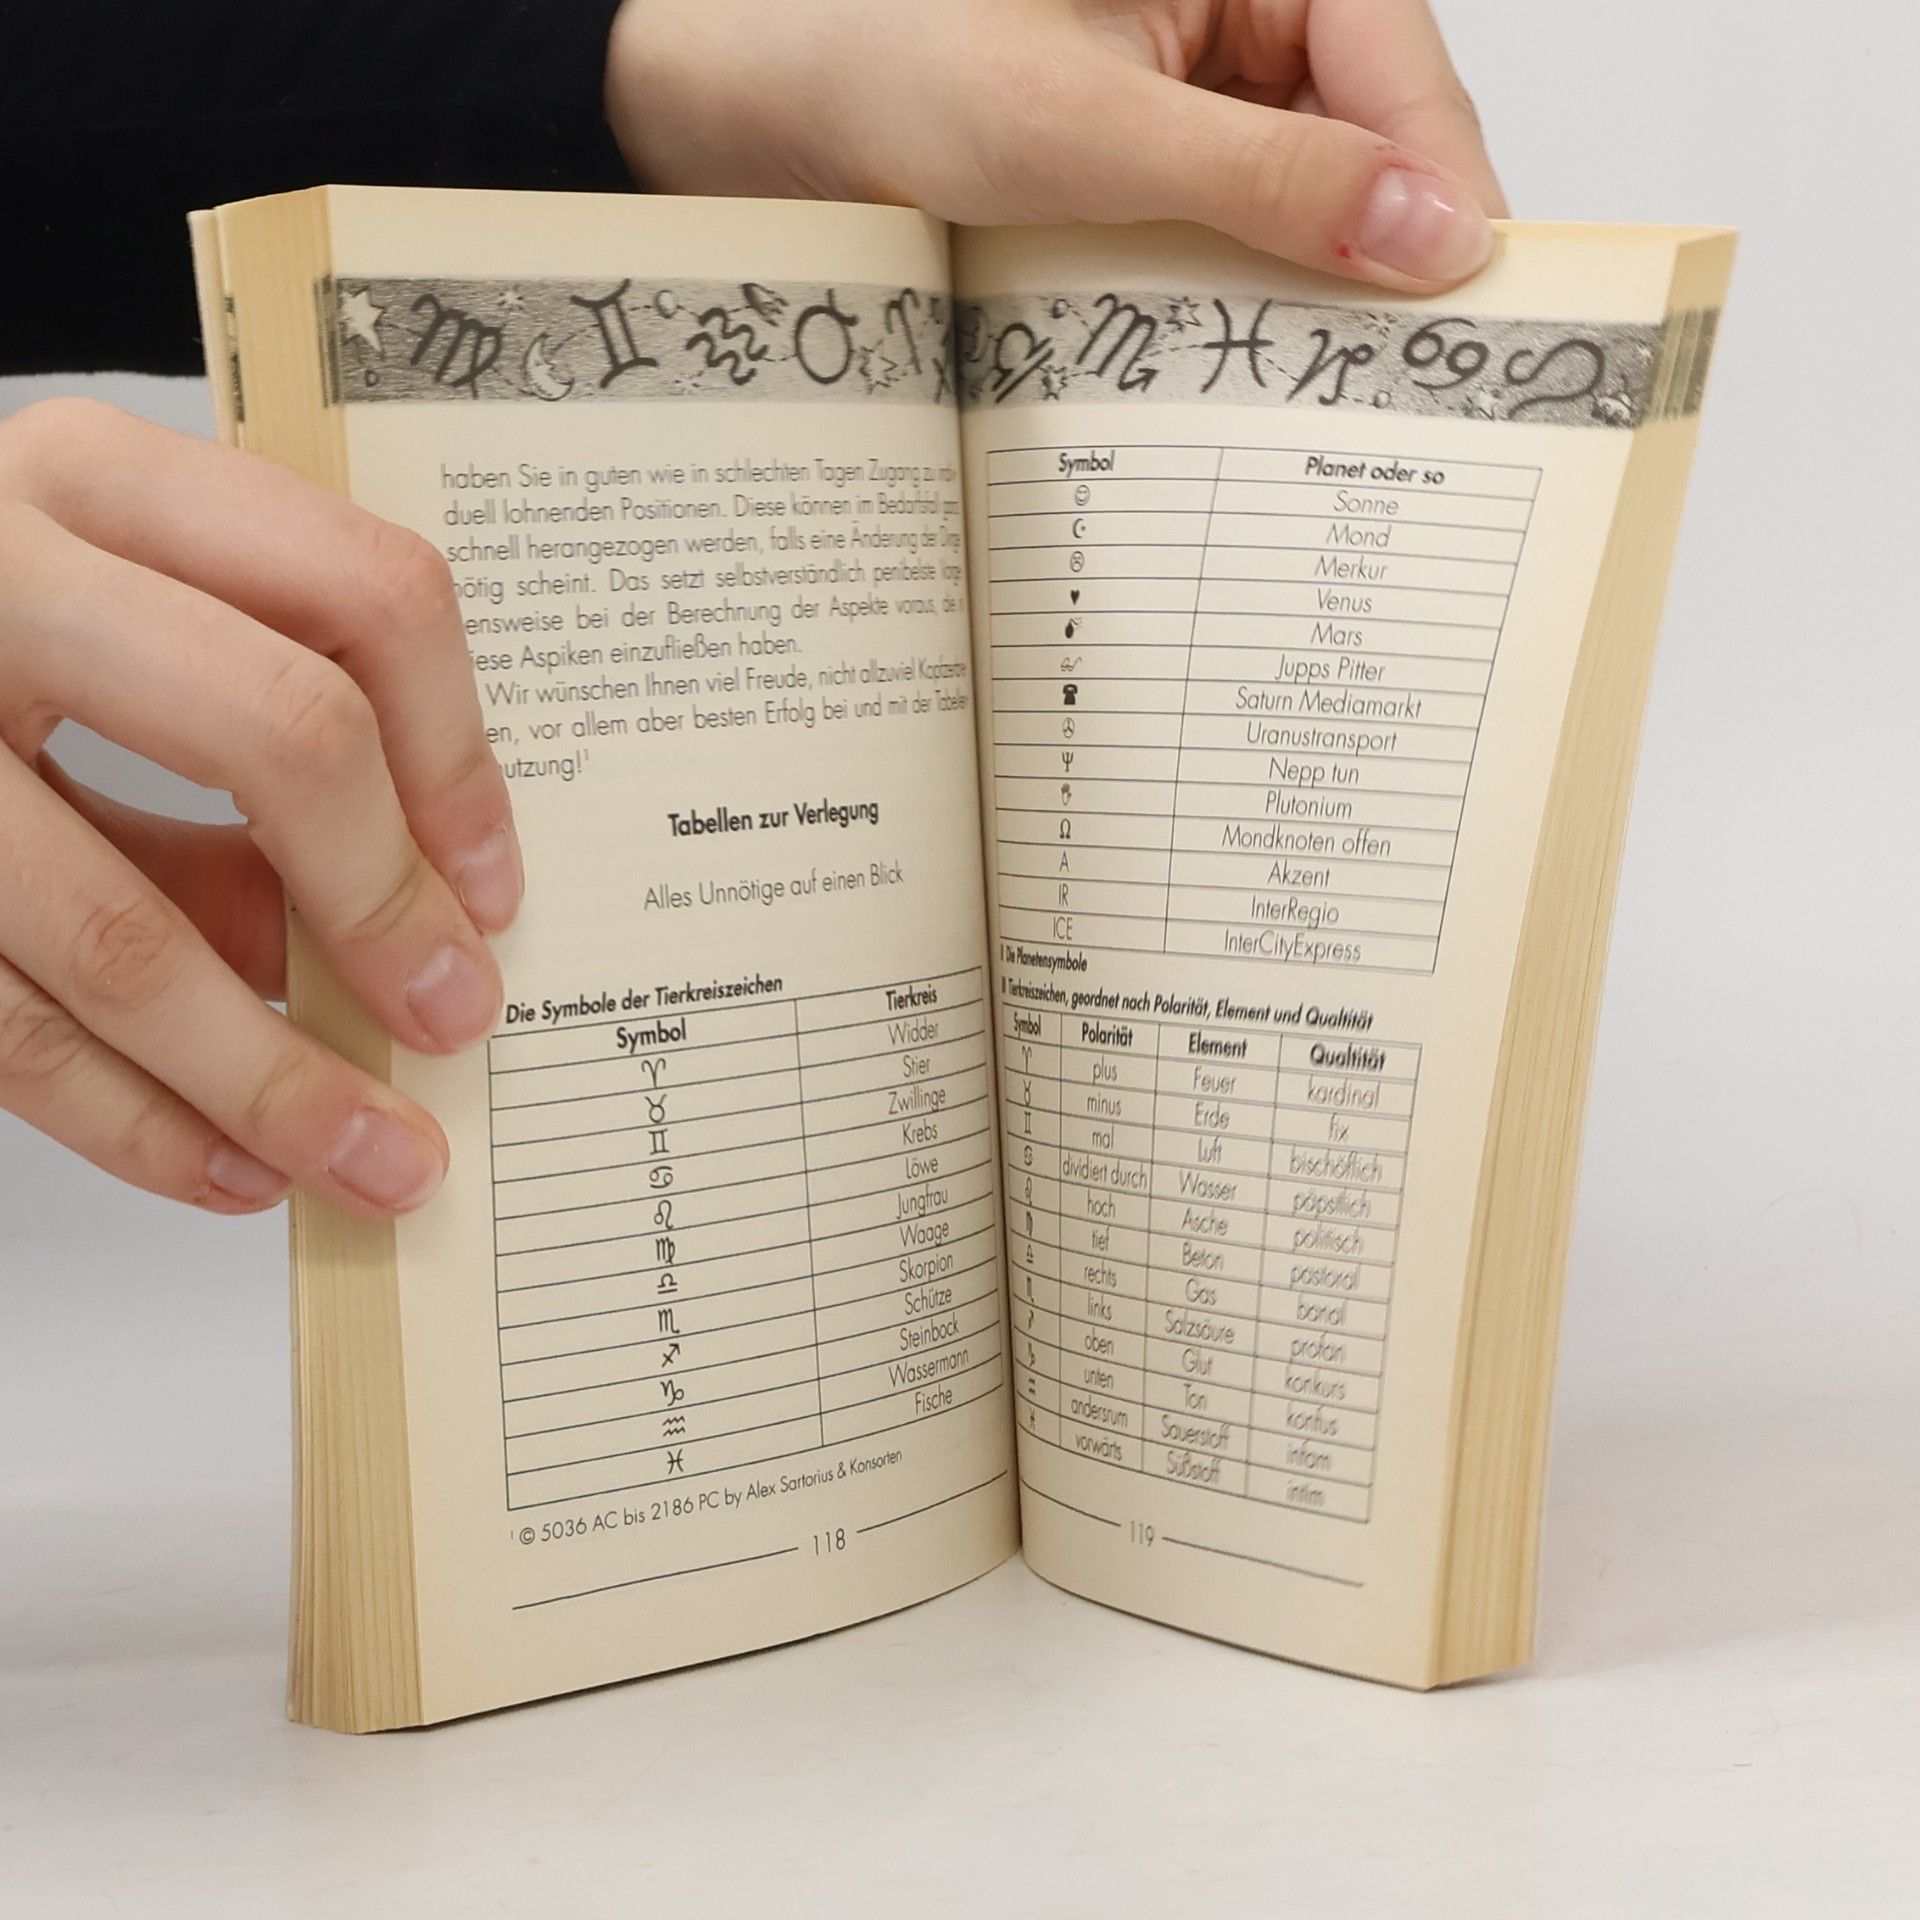 haben Sie in guten wie in schlechten Tagen Zugang zu
duell lohnenden Positionen. Diese können im Bedarfsfall ganz
schnell herangezogen werden, falls eine Änderung der Dinge
nötig scheint. Das setzt selbstverständlich penibelste
ensweise bei der Berechnung der Aspekte voraus,
iese Aspiken einzufließen haben.
Wir wünschen Ihnen viel Freude, nicht allzuviel
en, vor allem aber besten Erfolg bei und mit der
utzung!¹
Tabellen zur Verlegung
Alles Unnötige auf einen Blick
Die Symbole der Tierkreiszeichen
Symbol Tierkreis
♈ Widder
♉ Stier
♊ Zwillinge
♋ Krebs
♌ Löwe
♍ Jungfrau
♎ Waage
♏ Skorpion
♐ Schütze
♑ Steinbock
♒ Wassermann
♓ Fische
¹ © 5036 AC bis 2186 PC by Alex Sartorius & Konsorten
118
Symbol Planet oder so
☺ Sonne
☪ Mond
☹ Merkur
♥ Venus
💣 Mars
Jupps Pitter
☎ Saturn Mediamarkt
Uranustransport
Ψ Nepp tun
Plutonium
Ω Mondknoten offen
A Akzent
IR InterRegio
ICE InterCityExpress
Die Planetensymbole
Tierkreiszeichen, geordnet nach Polarität, Element und Qualtität
Symbol Polarität Element Qualtität
♈ plus Feuer kardinal
♉ minus Erde fix
♊ mal Luft bischöflich
♋ dividiert durch Wasser päpstlich
♌ hoch Asche politisch
♍ tief Beton pastoral
♎ rechts Gas banal
♏ links Salzsäure profan
♐ oben Glut konkurs
♑ unten Ton konfus
♒ andersrum Sauerstoff infam
♓ vorwärts Süßstoff intim
119